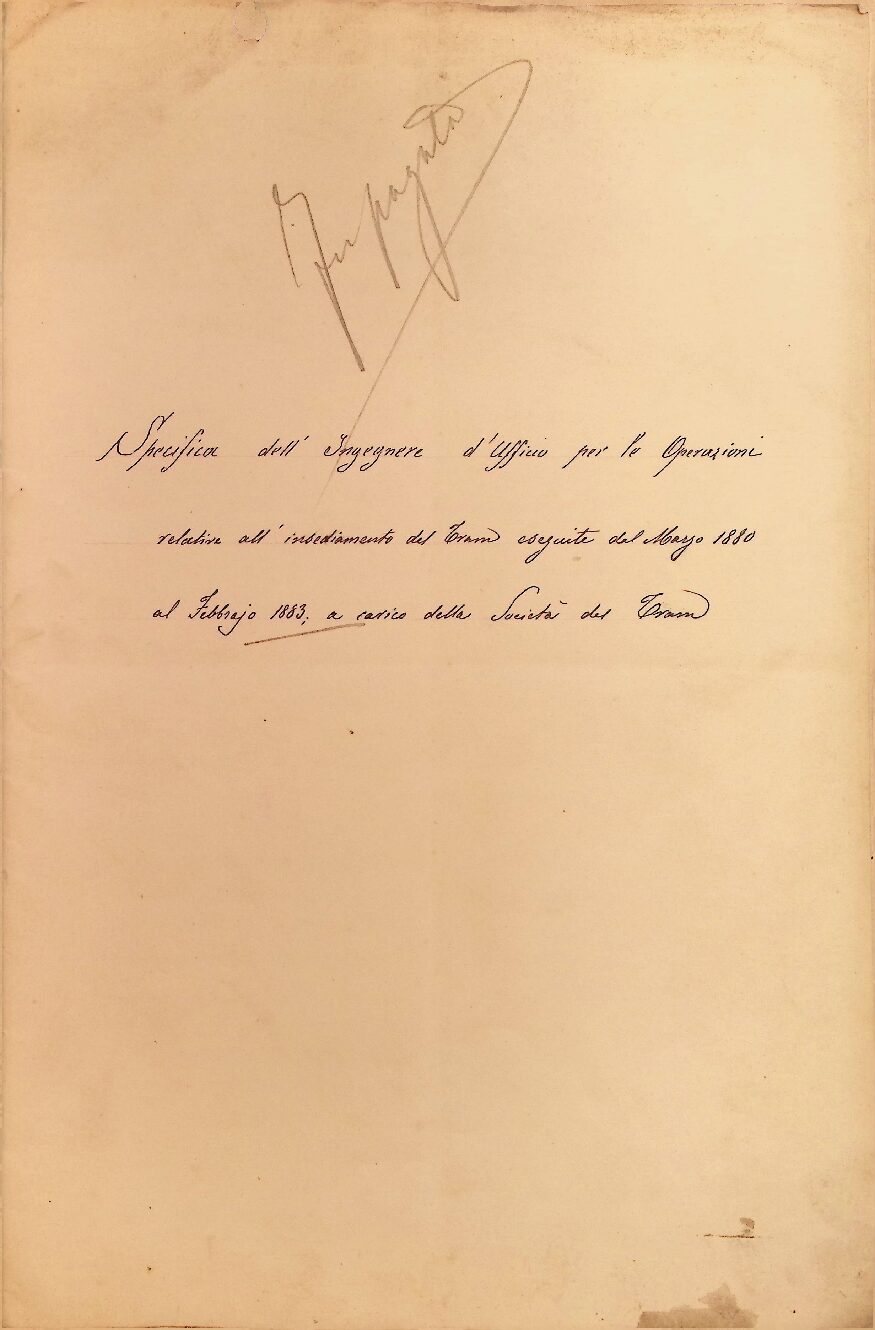 Fu pagata
Specifica dell' Ingegnere d'Ufficio per le Operazioni
relative all' insediamento del Tram eseguite dal Marzo 1880
al Febbrajo 1883, a carico della Società del Tram